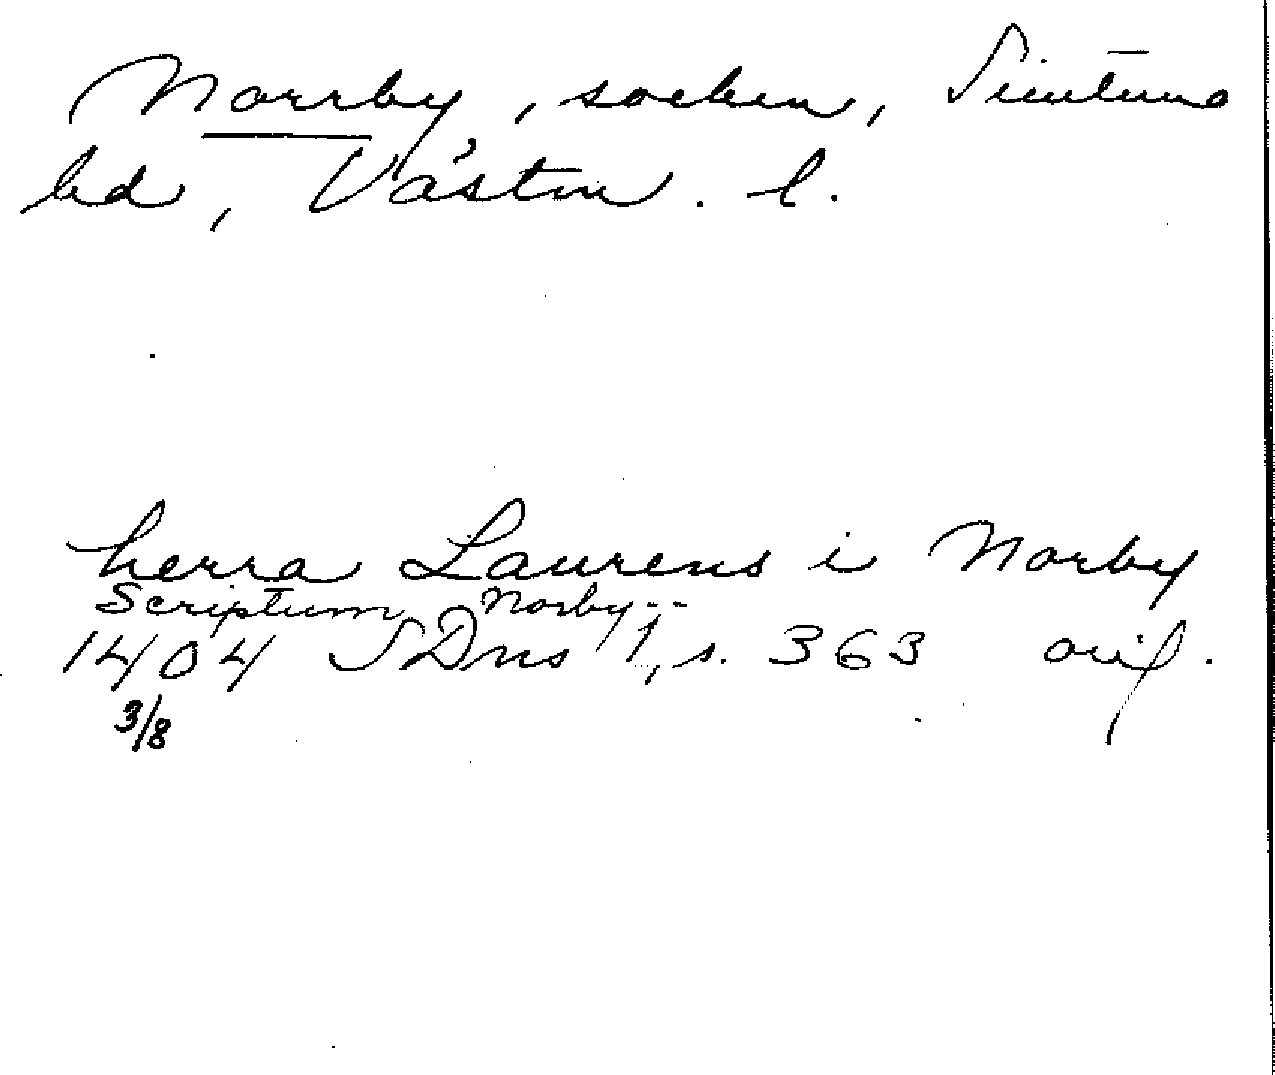 Norrby, socken, Simtuna
hd, Västm. l.
herra Laurens i Norby
Scriptum Norby --
1404 SDns 1, s. 363 orig.
3/8